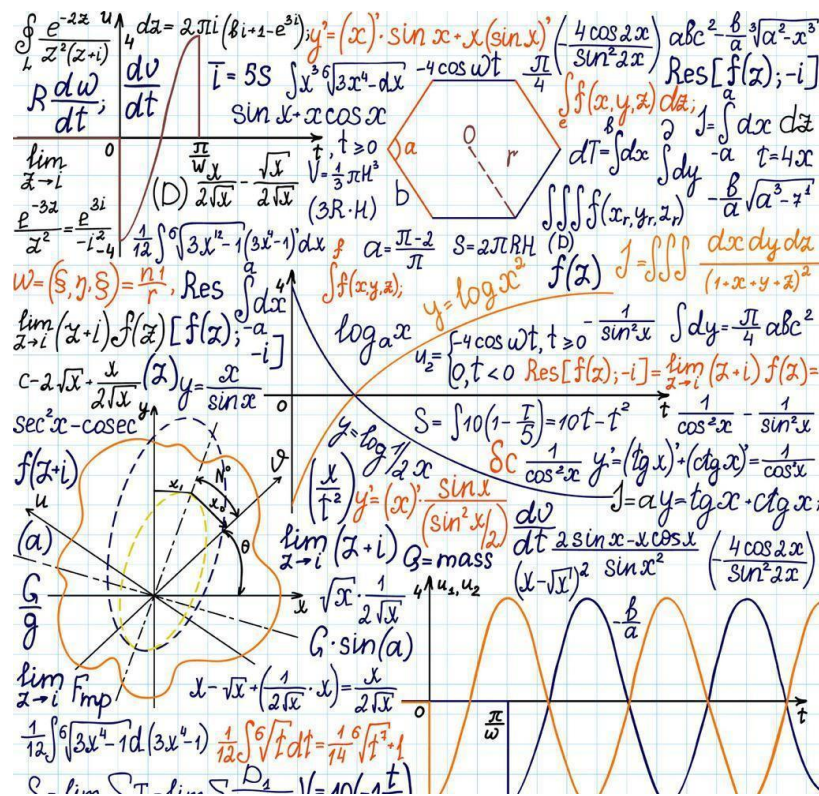 ∮_L e^{-2z} / z²(z+i)
u
4
dz = 2πi(b_{i+1}-e^{3i});
y'=(x)'·sin x+x(sin x)'
(-4cos2x / sin²2x)
abc²-b/a ³√(a²-x³)
R dw/dt;
dv/dt
T=5S
∫x³ ⁶√(3x⁴-dx)
-4cos wt
π/4
Res[f(z);-i]
sin x+x cos x
∫_e f(x,y,z)dz;
J=∫_{-a}^{a} dx dz
0
π/w
t
, t≥0
a
O
r
b
dT=∫^b dx
∫^∂ dy
t=4x
lim z→i
(D) x/2√x - √x/2√x
V=1/3 πH³
(3R·H)
∫∫∫f(x_r,y_r,z_r)
-b/a √(a³-7¹)
e^{-3z}/z² = e^{3i}/-i²
-4
1/12 ∫ ⁶√(3x¹²-1)(3x⁴-1)'dx
a=π-2/π
S=2πRH
(D)
f(z)
J=∫∫∫ dx dy dz / (1+x+y+z)²
w=(§,η,§)=n1/r,
Res
∫_{-a}^{a} dx
4
∫^f f(x,y,z);
y=log x²
lim z→i (z+i)f(z)[f(z);-i]
log_a x
u₂={-4cos wt, t≥0
0, t<0
-1/sin²x
∫dy=π/4 abc²
Res[f(z);-i]=lim z→i (z+i)f(z)=
c-2√x+x/2√x
(z)
y=x/sin x
0
t
sec²x-cosec
y
S=∫10(1-T/5)=10t-t²
1/cos²x - 1/sin²x
f(z+i)
N°
v
y=log 1/2 x
δc 1/cos²x
y'=(tgx)'+(ctgx)'=1/cos²x
x₁
u
(x/t²)
y'=(x)'·sin x/(sin²x/2)
J=ay=tgx+ctgx;
(a)
θ
lim z→i (z+i)
Q=mass
dv/dt
2sin x-x cos x / sin x²
(x-√x)²
(-4cos2x / sin²2x)
G/g
x
√x·1/2√x
4
u₁,u₂
-b/a
G·sin(a)
lim z→i F_mp
x-√x+(1/2√x·x)=x/2√x
0
π/w
t
1/12 ∫ ⁶√(3x⁴-1)d(3x⁴-1)
1/12 ∫ ⁶√t dt=1/14 ⁶√t⁷+1